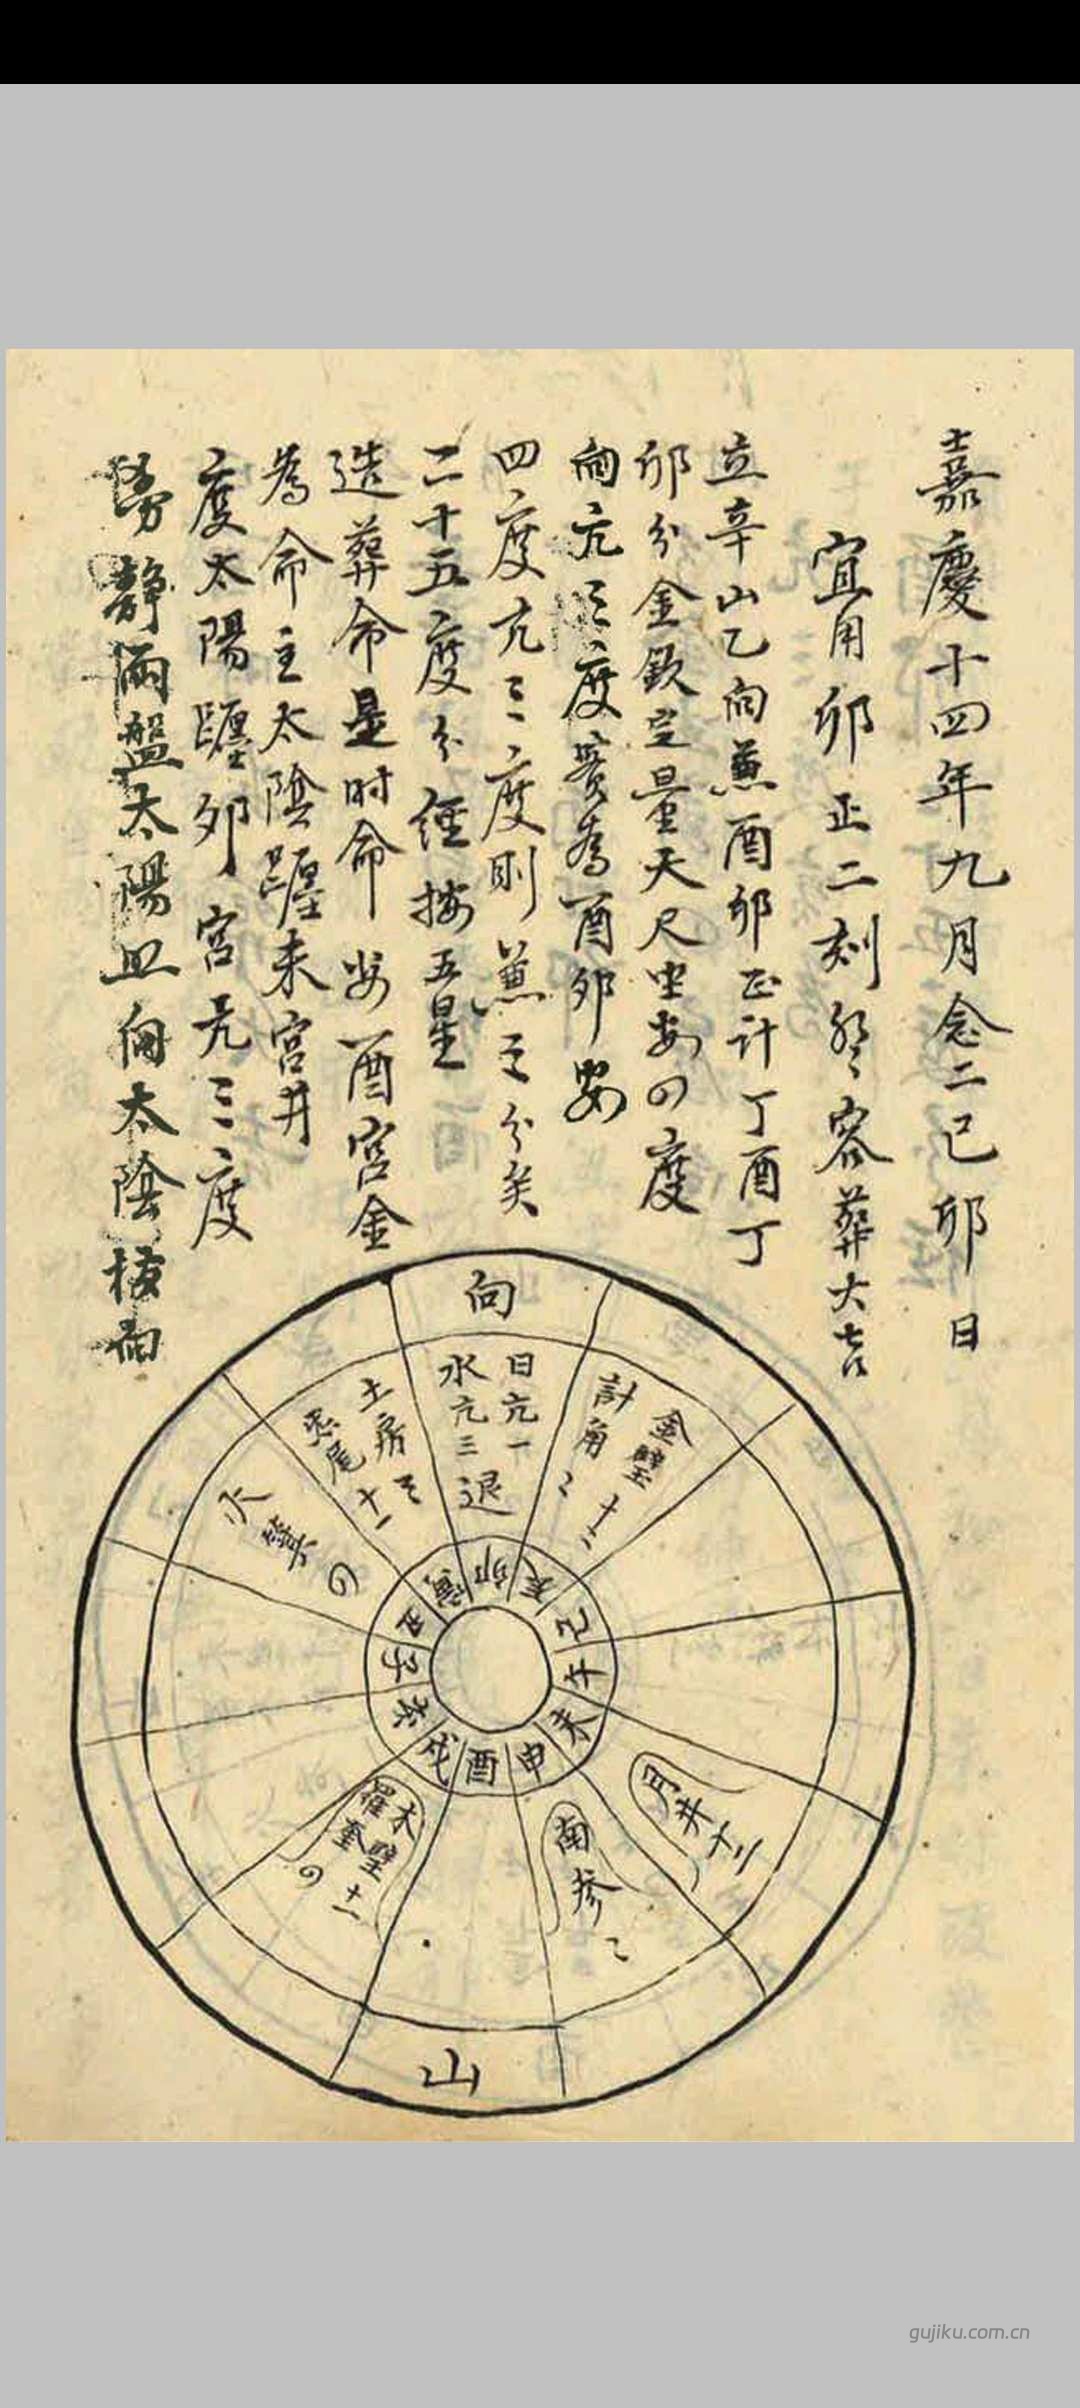 嘉慶十四年九月念二己卯日
宜用卯正二刻登穴葬大吉
立辛山乙向兼酉卯正計丁酉丁
卯分金欽定量天尺坐昴四度
向亢三度實為酉卯要
四度亢三度則兼之分矣
二十五度分經按五星
造葬命是时命安酉宮金
為命主太陰躔未宮井
度太陽躔卯宮亢三度
靜兩盤太陽且向太陰
向
日亢一
水亢三退
計角
金璧十二
土房
尾十一
火箕
卯
辰
巳
午
未
申
酉
戌
亥
子
丑
寅
月井十二
南參
木壁十一
羅奎
山
gujiku.com.cn